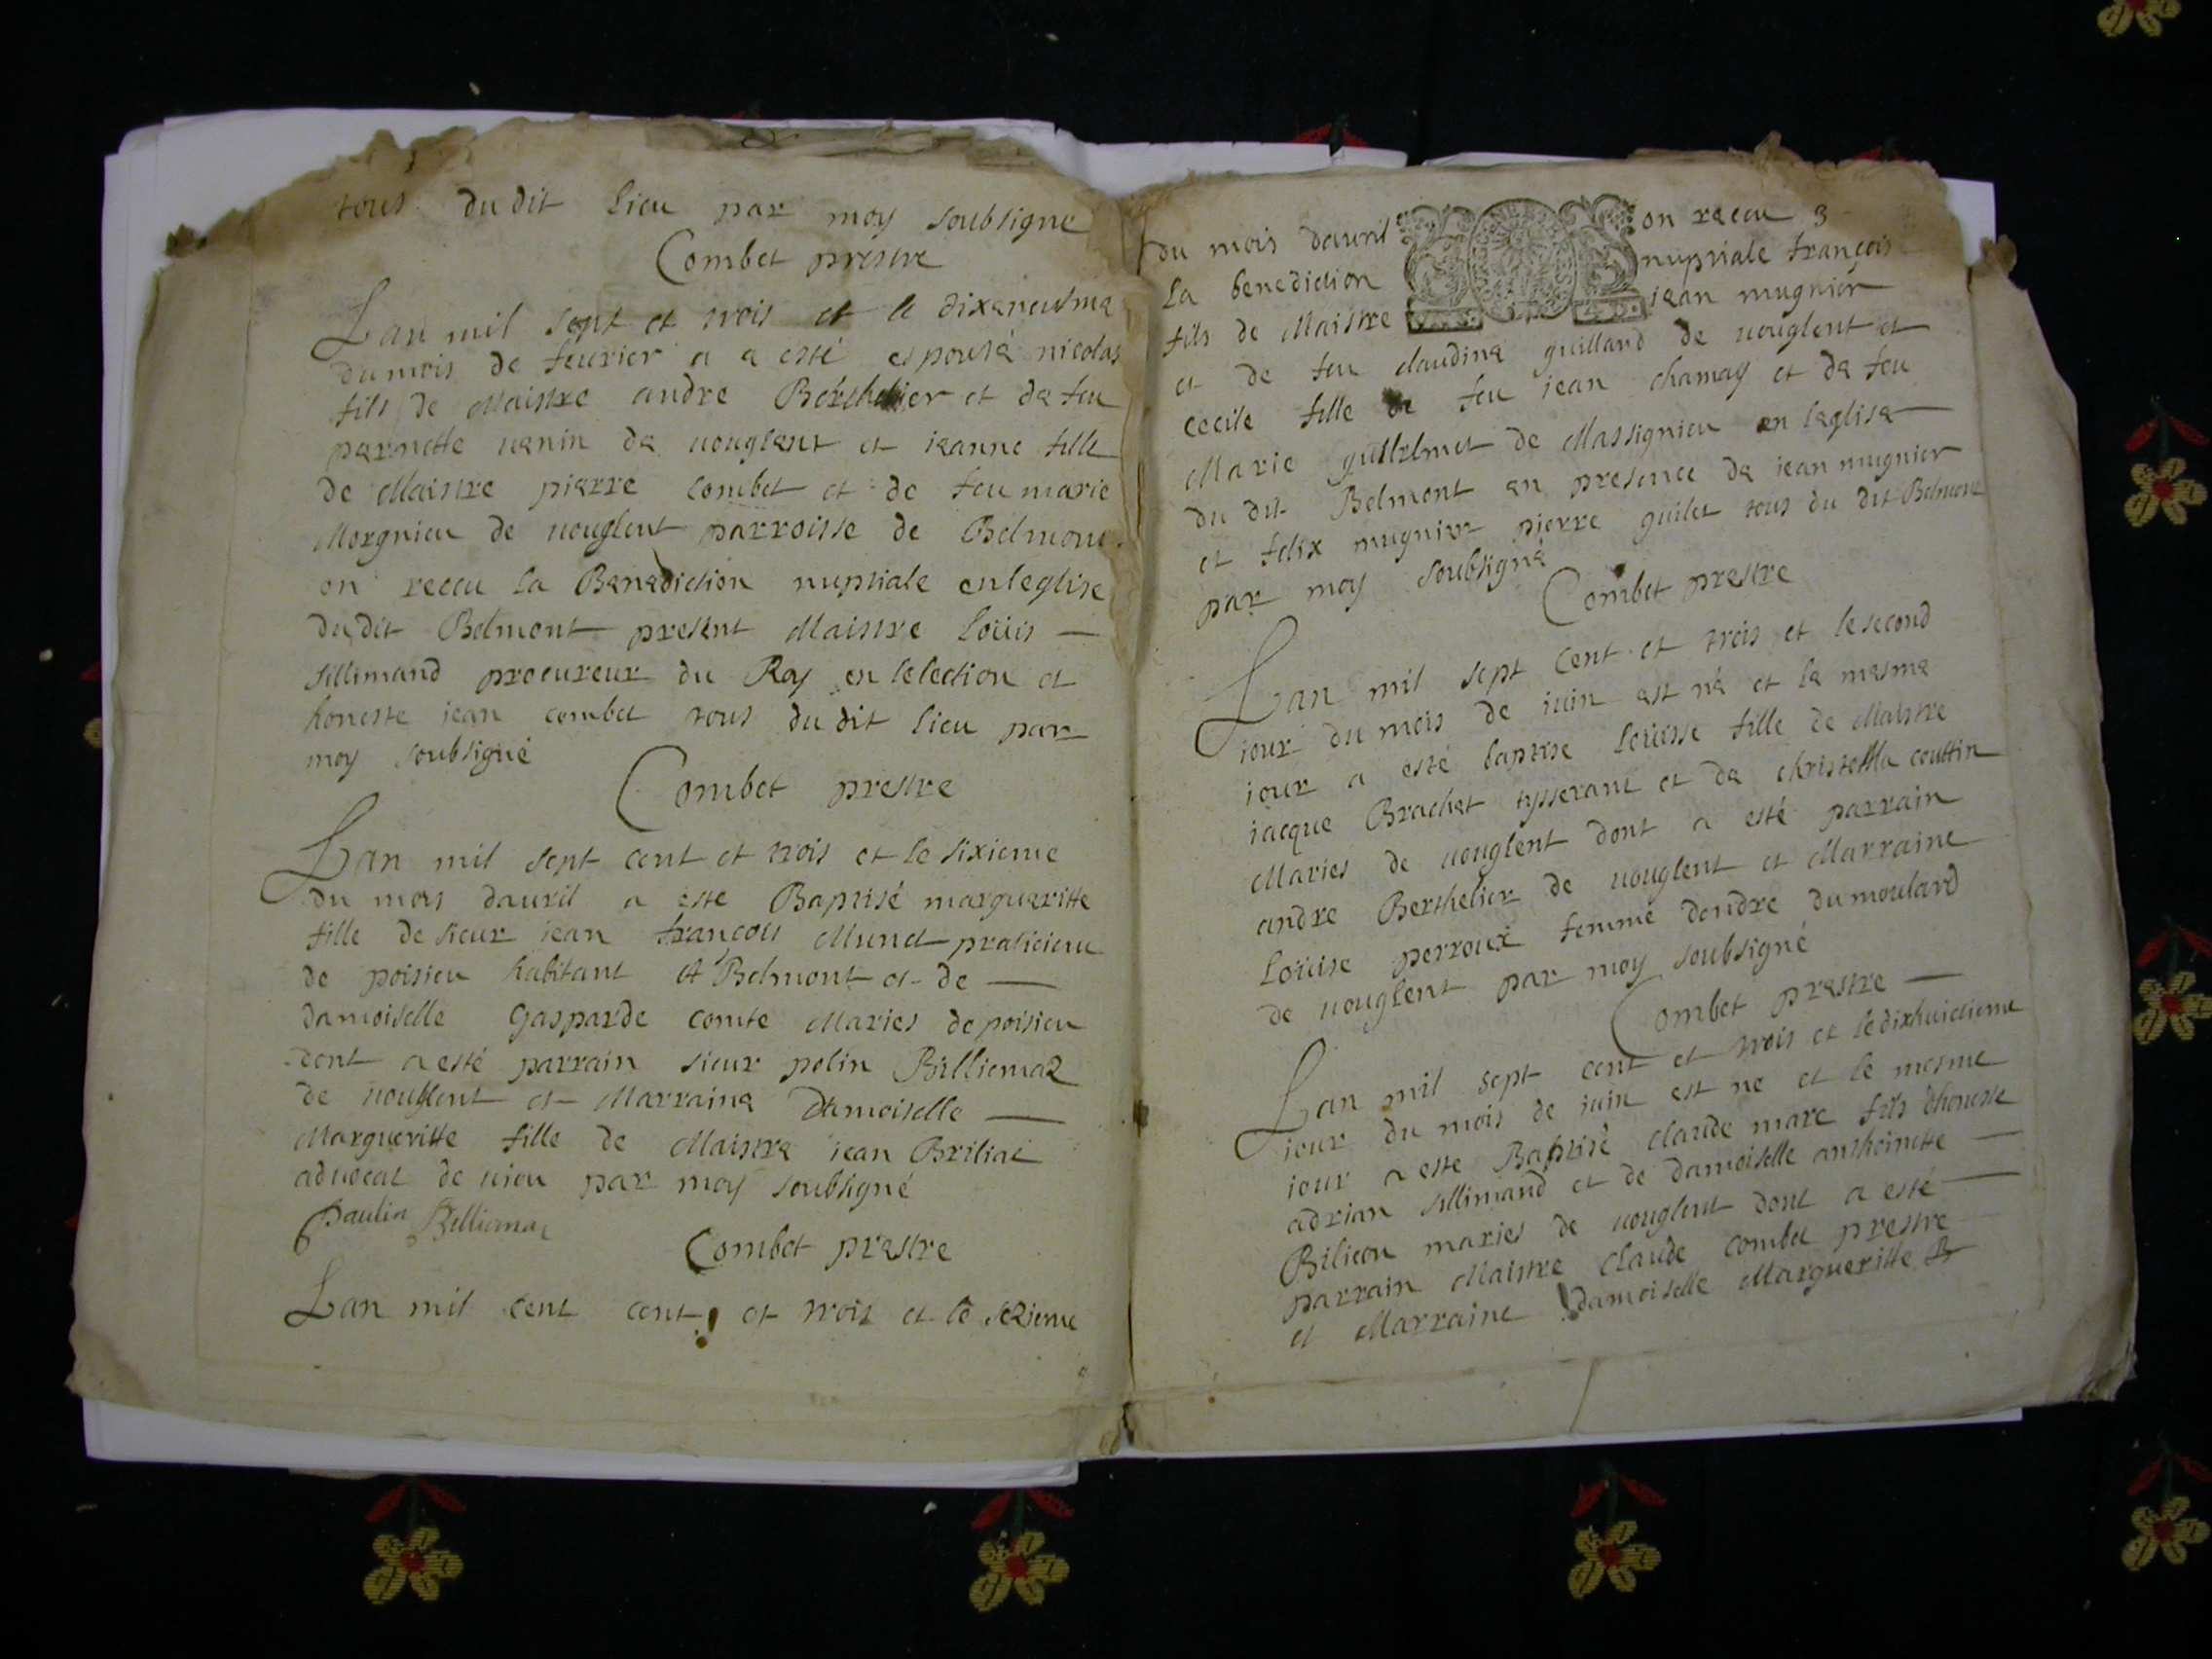 tous du dit lieu par moy soubsigne
Combet prestre
Lan mil sept et trois et le dixeneusme
du mois de feurier a a esté espousé nicolas
fils de Maistre andre Berthelier et de feu
pernette uenin de uouglent et ieanne fille
de Maistre pierre combet et de feu marie
Morgnieu de uouglent parroisse de Belmont
on receu la Benediction nuptiale en leglise
du dit Belmont present Maistre loüis
sillimand procureur du Roy en lelection et
honeste iean combet tous du dit lieu par
moy soubsigné
Combet prestre
Lan mil sept cent et trois et le sixieme
du mois dauril a este Baptisé margueritte
fille de sieur iean françois Munet praticieu
de poisieu habitant A Belmont et de
damoiselle Gasparde comte Maries de poisieu
dont a esté parrain sieur polin Billiemaz
de uouglent et Marraine Damoiselle
Margueritte fille de Maistre iean Briliat
aduocat de uieu par moy soubsigné
paulin Billiemaz
Combet prestre
Lan mil cent cent et trois et le sezieme
du mois dauril on receu 3
la benediction nuptiale françois
fils de Maistre iean mugnier
et de feu claudine guilland de uouglent et
cecile fille de feu iean chamay et de feu
Marie guillelmet de Massignieu en leglise
du dit Belmont en presence de iean mugnier
et felix mugnier pierre guilet tous du dit Belmont
par moy soubsigné
Combet prestre
Lan mil sept cent et trois et le second
iour du mois de iuin est né et le mesme
iour a esté baptise loüisse fille de Maistre
iacque Brachet tysserant et de christofla couttin
Maries de uouglent dont a esté parrain
andre Berthelier de uouglent et Marraine
Loüise perroux femme dandre du moulard
de uouglent par moy soubsigné
Combet prestre
Lan mil sept cent et trois et le dixhuictieme
iour du mois de iuin est ne et le mesme
iour a este Baptisé claude marc fils dhoneste
adrian sillimand et de damoiselle anthoinette
Bilieou maries de uouglent dont a esté
parrain Maistre claude combet prestre
et Marraine damoiselle Margueritte B